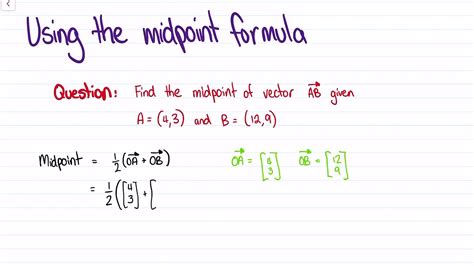 Using the midpoint formula
Question: Find the midpoint of vector AB⃗ given
A = (4,3) and B = (12,9)
Midpoint = 1/2 (OA⃗ + OB⃗) OA⃗ = [4 3] OB⃗ = [12 9]
= 1/2 ([4 3] + [